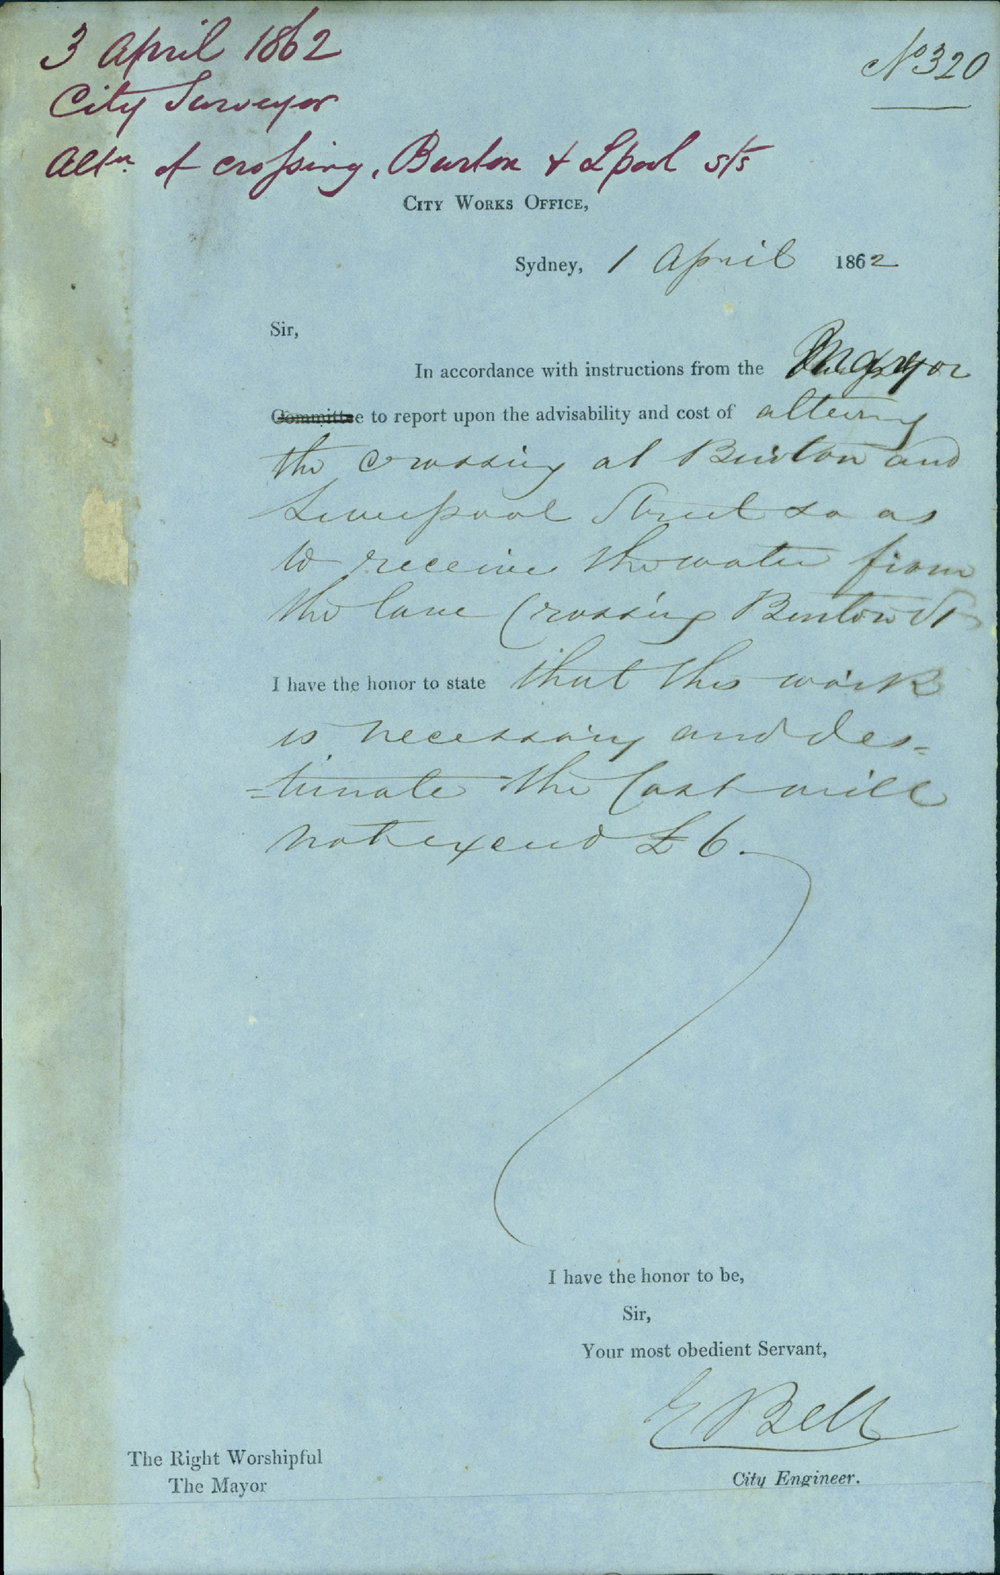 3 April 1862
No 320
City Surveyor
Altn. of crossing, Burton & Lpool sts
CITY WORKS OFFICE,
Sydney, 1 April 1862
Sir,
In accordance with instructions from the Mayor
Committee to report upon the advisability and cost of altering
the crossing at Burton and
Liverpool Street so as
to receive the water from
the lane Crossing Burton St
I have the honor to state that this work
is necessary and des=
=timate the Cost will
not exceed £6.
I have the honor to be,
Sir,
Your most obedient Servant,
E Bell
City Engineer.
The Right Worshipful
The Mayor